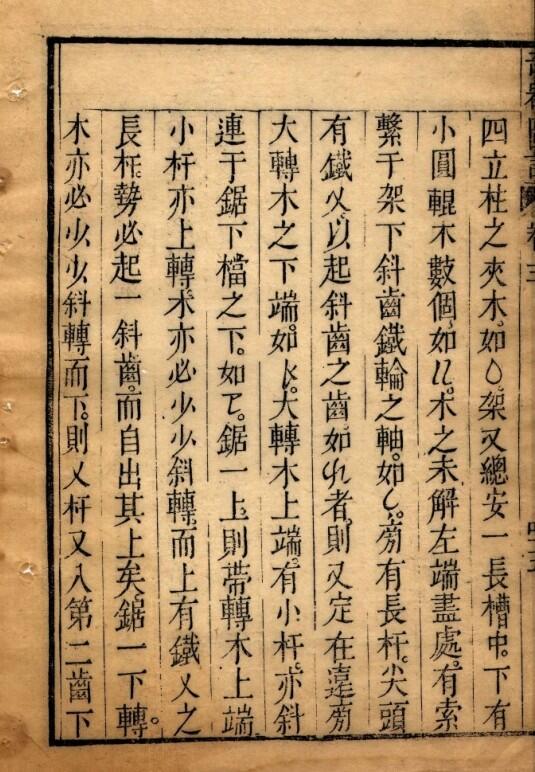 四立柱之夾木。如〇。架又總安一長槽中。下有
小圓輥木數個。如。木之未解左端盡處。有索
繫于架下斜齒鐵輪之軸。如。旁有長杆。尖頭
有鐵乂。以起斜齒之齒。如者。則又定在邊旁
大轉木之下端。如。大轉木上端。有小杆。亦斜
連于鋸下檔之下。如。鋸一上。則帶轉木上端
小杆亦上轉。木亦必少少斜轉而上。有鐵乂之
長杆。勢必起一斜齒。而自出其上矣。鋸一下轉。
木亦必少少斜轉而下。則乂杆又入第二齒下
卷三